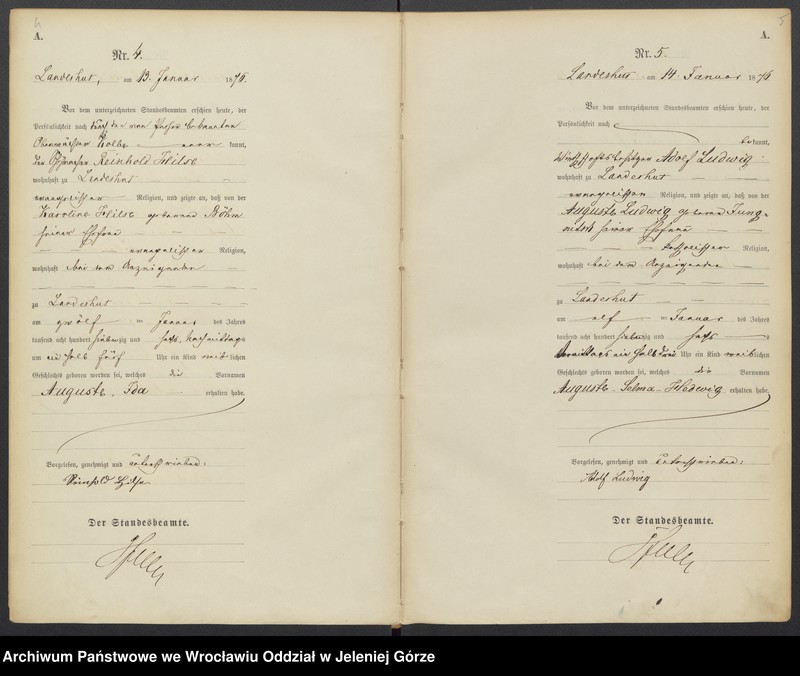 4
A.
Nr. 4.
Landeshut, am 13. Januar 1876.
Vor dem unterzeichneten Standesbeamten erschien heute, der
Persönlichkeit nach durch den von Person bekannten
Kolbe kannt,
der Reinhold Hilse
wohnhaft zu Landeshut
evangelischer Religion, und zeigte an, daß von der
Karoline Hilse geborene Böhm
seiner Ehefrau
evangelischer Religion,
wohnhaft bei dem Anzeigenden
zu Landeshut
am zwölf ten Januar des Jahres
tausend acht hundert siebenzig und sechs, Nachmittags
um ein halb fünf Uhr ein Kind weiblichen
Geschlechts geboren worden sei, welches die Vornamen
Auguste Ida erhalten habe.
Vorgelesen, genehmigt und unterschrieben:
Reinhold Hilse
Der Standesbeamte.
5
A.
Nr. 5.
Landeshut am 14. Januar 1876
Vor dem unterzeichneten Standesbeamten erschien heute, der
Persönlichkeit nach
bekannt,
Adolf Ludwig
wohnhaft zu Landeshut
evangelischer Religion, und zeigte an, daß von der
Auguste Ludwig geborene Jung-
nitsch seiner Ehefrau
katholischer Religion,
wohnhaft bei dem Anzeigenden
zu Landeshut
am elf ten Januar des Jahres
tausend acht hundert siebenzig und sechs
Vormittags um halb drei Uhr ein Kind weiblichen
Geschlechts geboren worden sei, welches die Vornamen
Auguste Selma Hedwig erhalten habe.
Vorgelesen, genehmigt und unterschrieben:
Adolf Ludwig
Der Standesbeamte.
Archiwum Państwowe we Wrocławiu Oddział w Jeleniej Górze